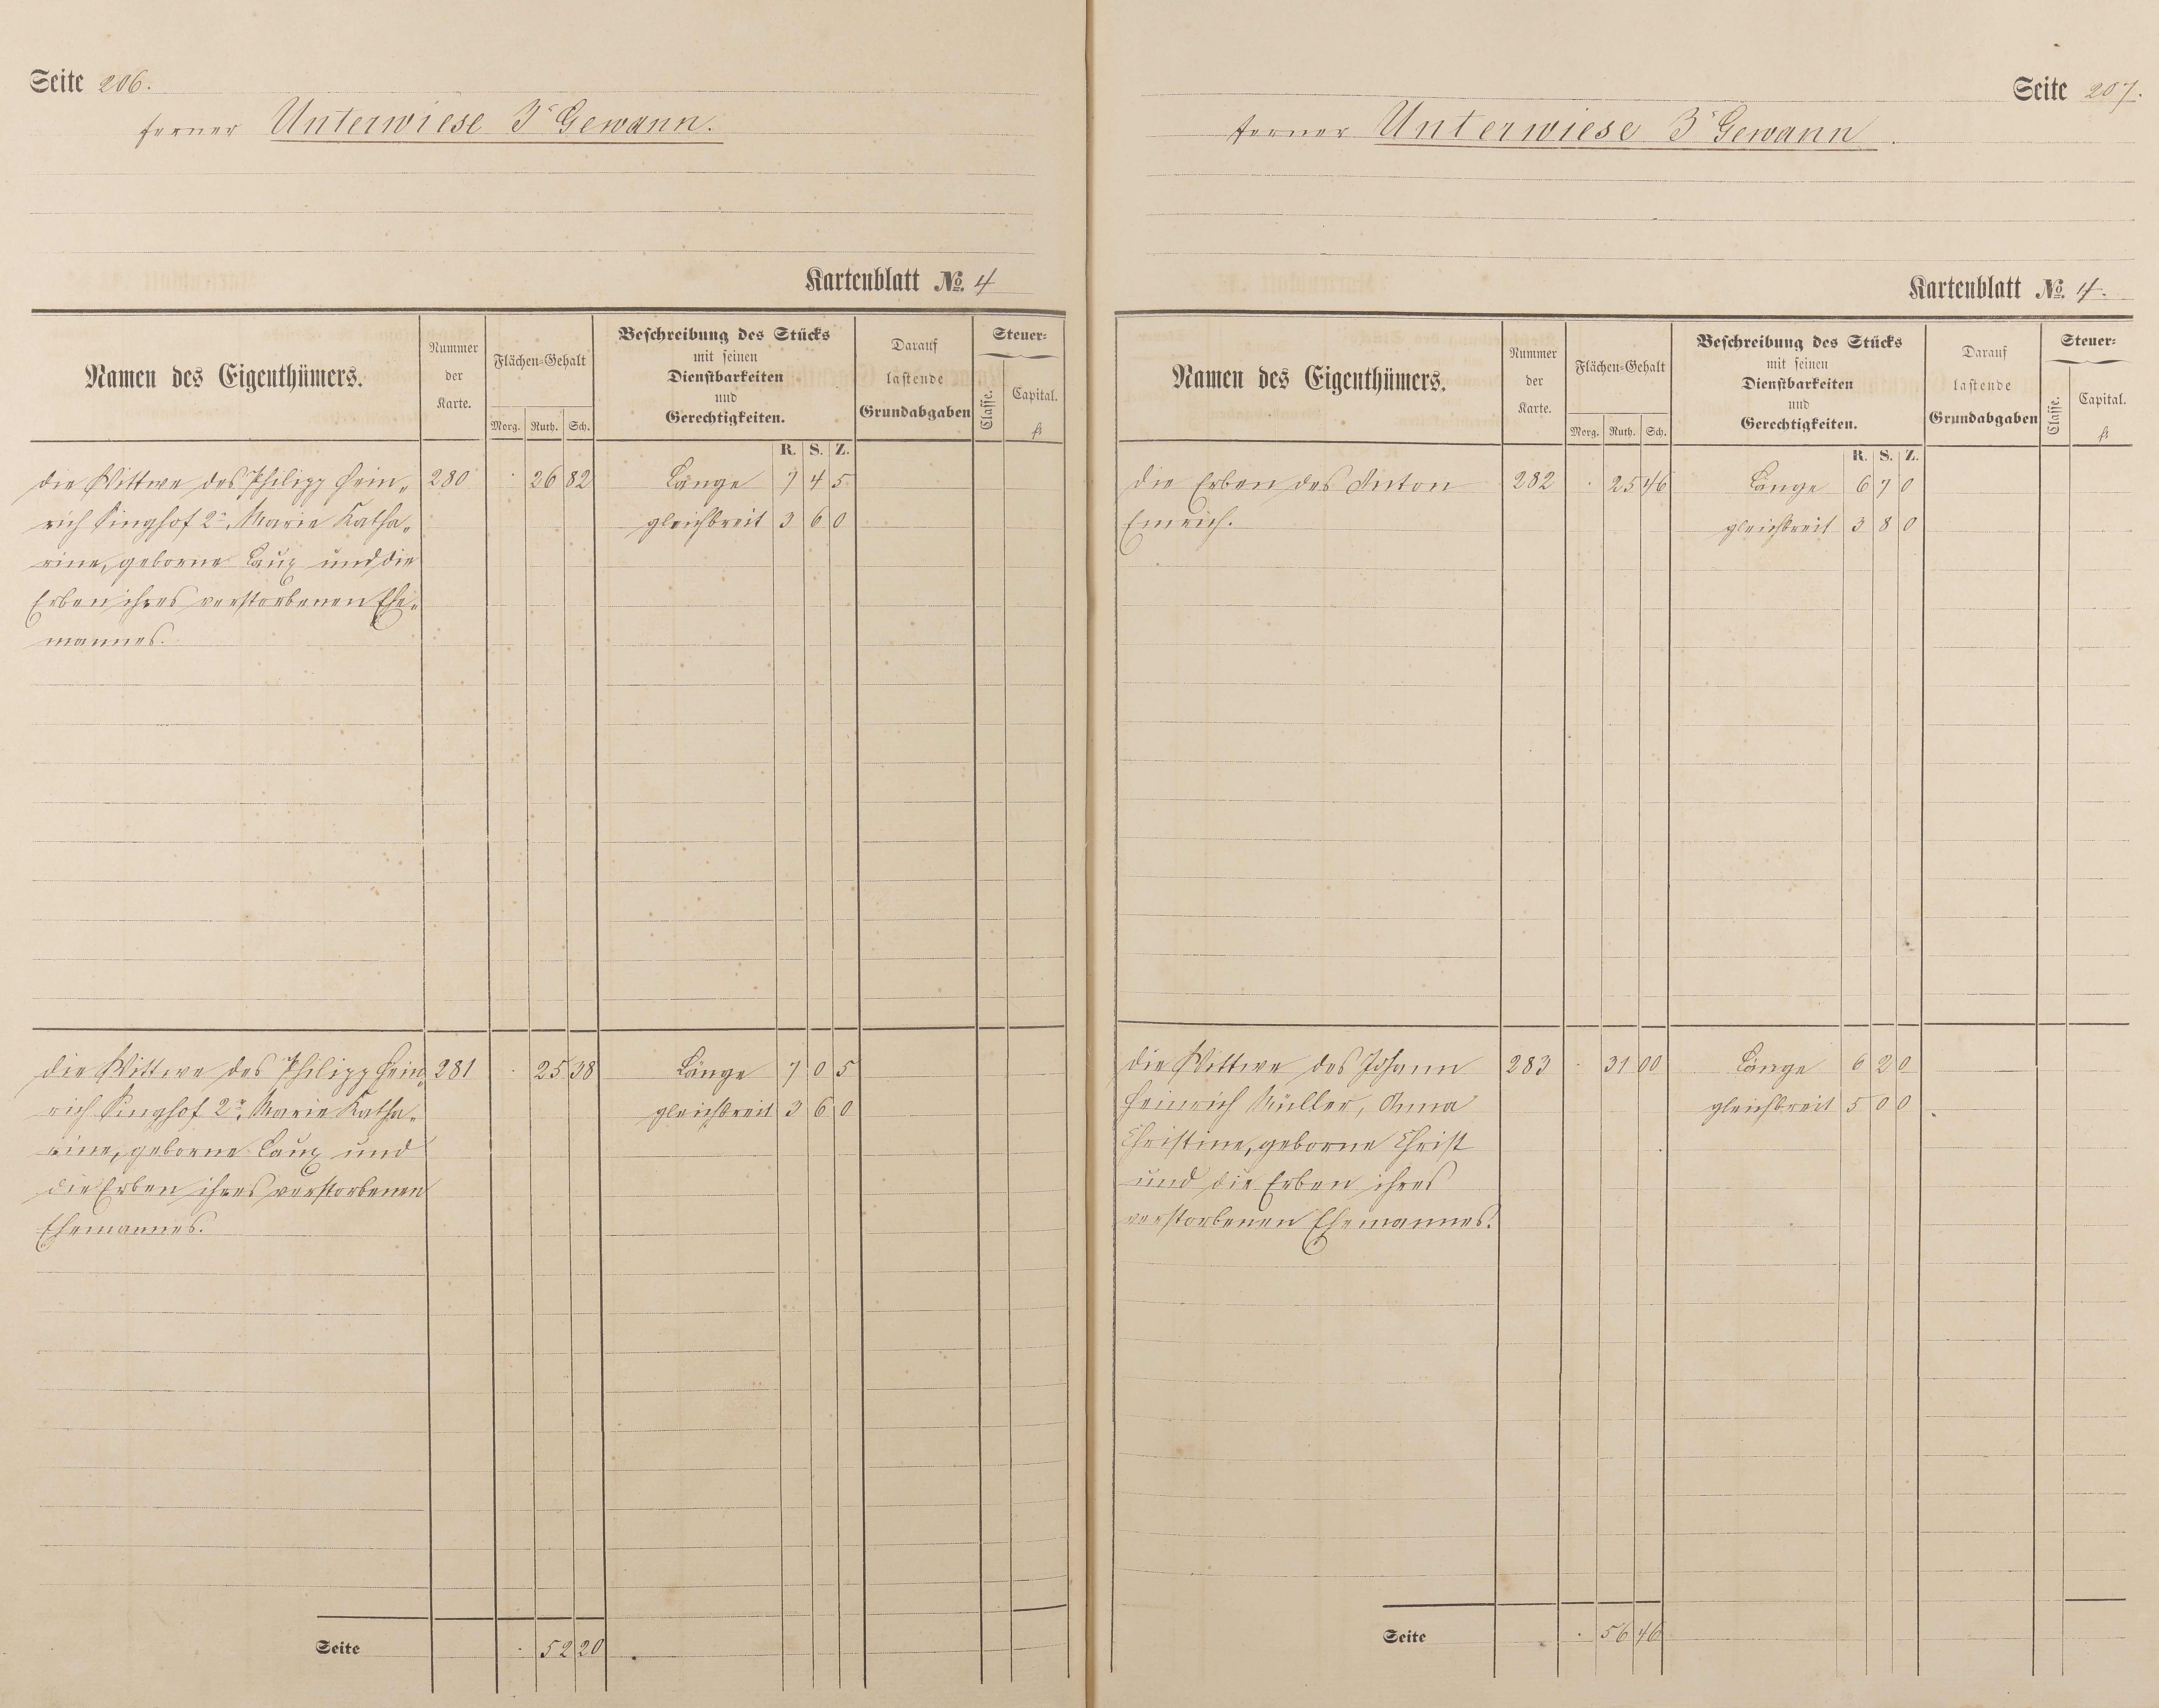 Seite 206.
ferner Unterwiese 3r Gewann.
Kartenblatt No. 4
Namen des Eigenthümers.
Nummer der Karte.
Flächen=Gehalt
Morg. Ruth. Sch.
Beschreibung des Stücks
mit seinen
Dienstbarkeiten
und
Gerechtigkeiten.
Darauf
lastende
Grundabgaben
Steuer=
Classe.
Capital.
fl.
R. S. Z.
die Wittwe des Philipp Hein„ 280 . 26 82 Länge 7 4 5
rich Singhof 2r, Marie Katha„ gleichbreit 3 6 0
rine, geborne Laux und die
Erben ihres verstorbenen Ehe„
mannes.
die Wittwe des Philipp Hein„ 281 . 25 38 Länge 7 0 5
rich Singhof 2r, Marie Katha„ gleichbreit 3 6 0
rine, geborne Laux und
die Erben ihres verstorbenen
Ehemannes.
Seite . 52 20
Seite 207.
ferner Unterwiese 3r Gewann.
Kartenblatt No. 4.
Namen des Eigenthümers.
Nummer der Karte.
Flächen=Gehalt
Morg. Ruth. Sch.
Beschreibung des Stücks
mit seinen
Dienstbarkeiten
und
Gerechtigkeiten.
Darauf
lastende
Grundabgaben
Steuer=
Classe.
Capital.
fl.
R. S. Z.
die Erben des Anton 282 . 25 46 Länge 6 7 0
Emrich. gleichbreit 3 8 0
die Wittwe des Johann 283 . 31 00 Länge 6 2 0
Heinrich Müller, Anna gleichbreit 5 0 0
Christine, geborne Christ
und die Erben ihres
verstorbenen Ehemannes.
Seite . 56 46